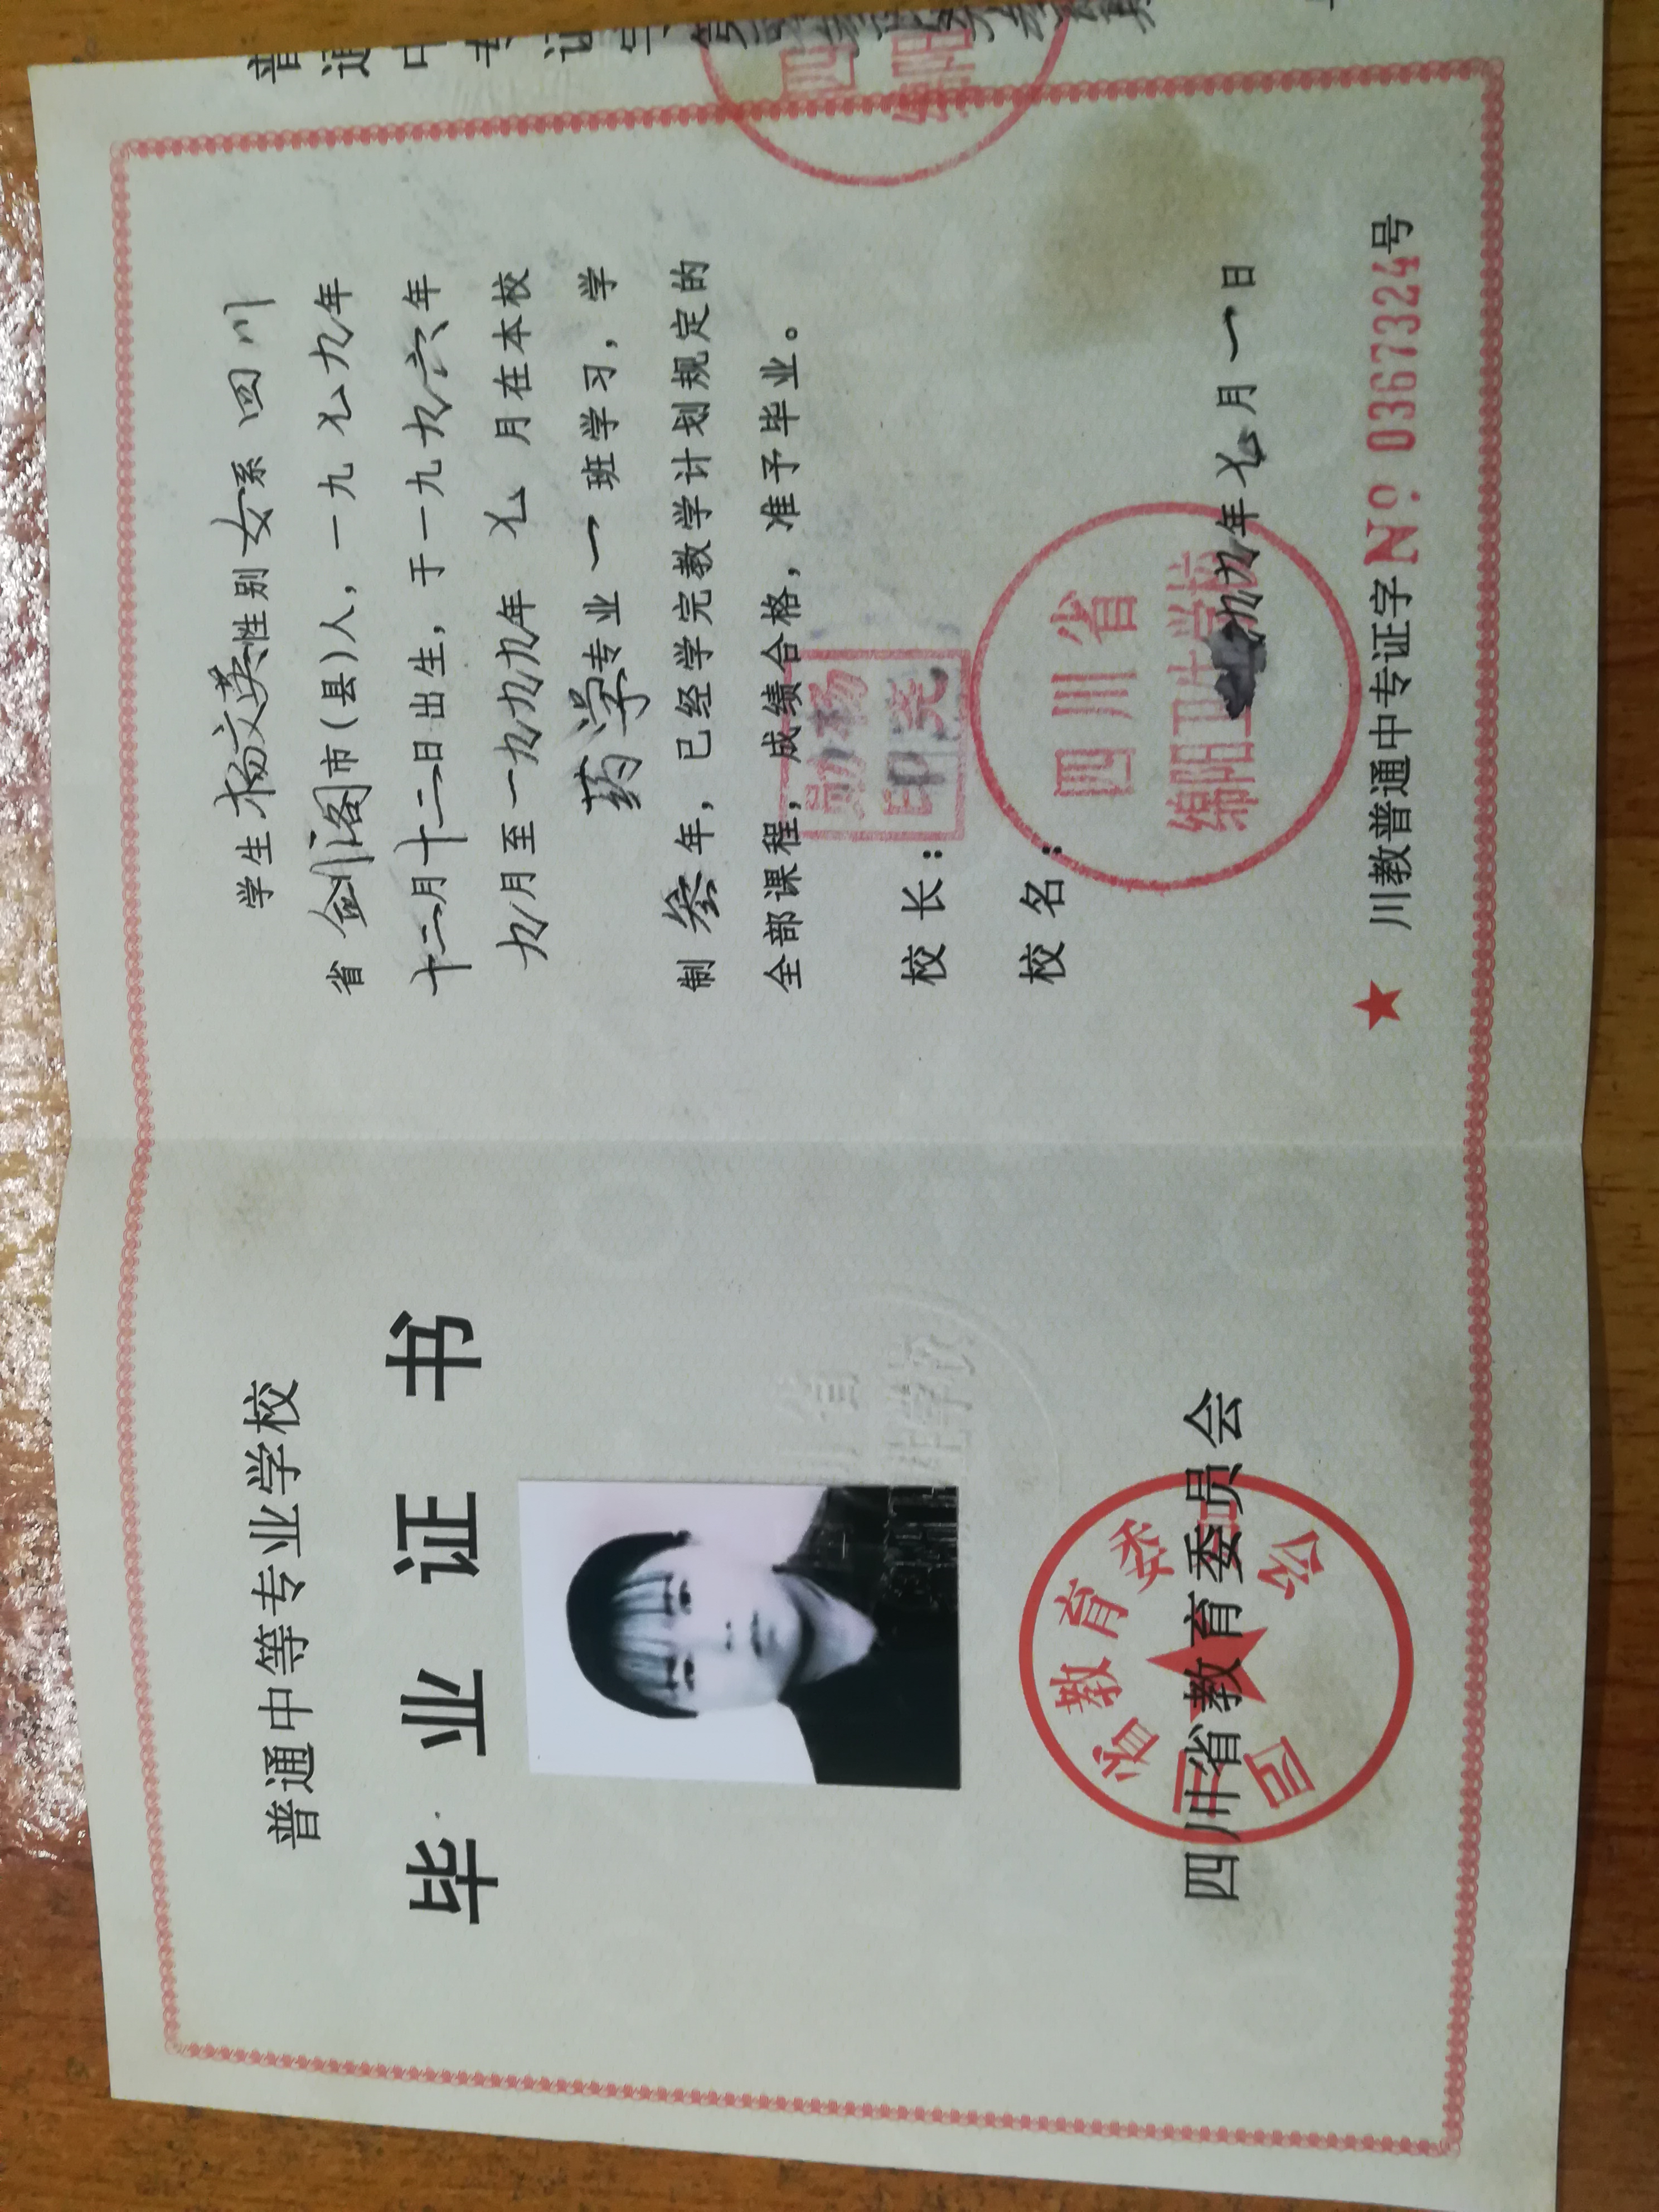 普通中等专业学校
毕业证书
四川省教育委员会
四川省教育委员会
学生杨文英性别女系四川
省剑阁市(县)人,一九七九年
十二月十二日出生,于一九九六年
九月至一九九九年七月在本校
药学专业一班学习,学
制叁年,已经学完教学计划规定的
全部课程,成绩合格,准予毕业。
校长:
杨尧勋印
校名:
四川省
绵阳卫生学校
九九年七月一日
川教普通中专证字No.0367324号
普通中专证
四
绵阳